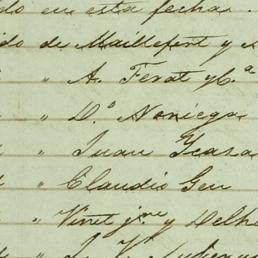 do en esta fecha.
ido de Maillefert y
" A. Ferat y C.ª
" D.º Noriega
" Juan Ycaza
" Claudio Gen
" Vinet j.ne y Delh